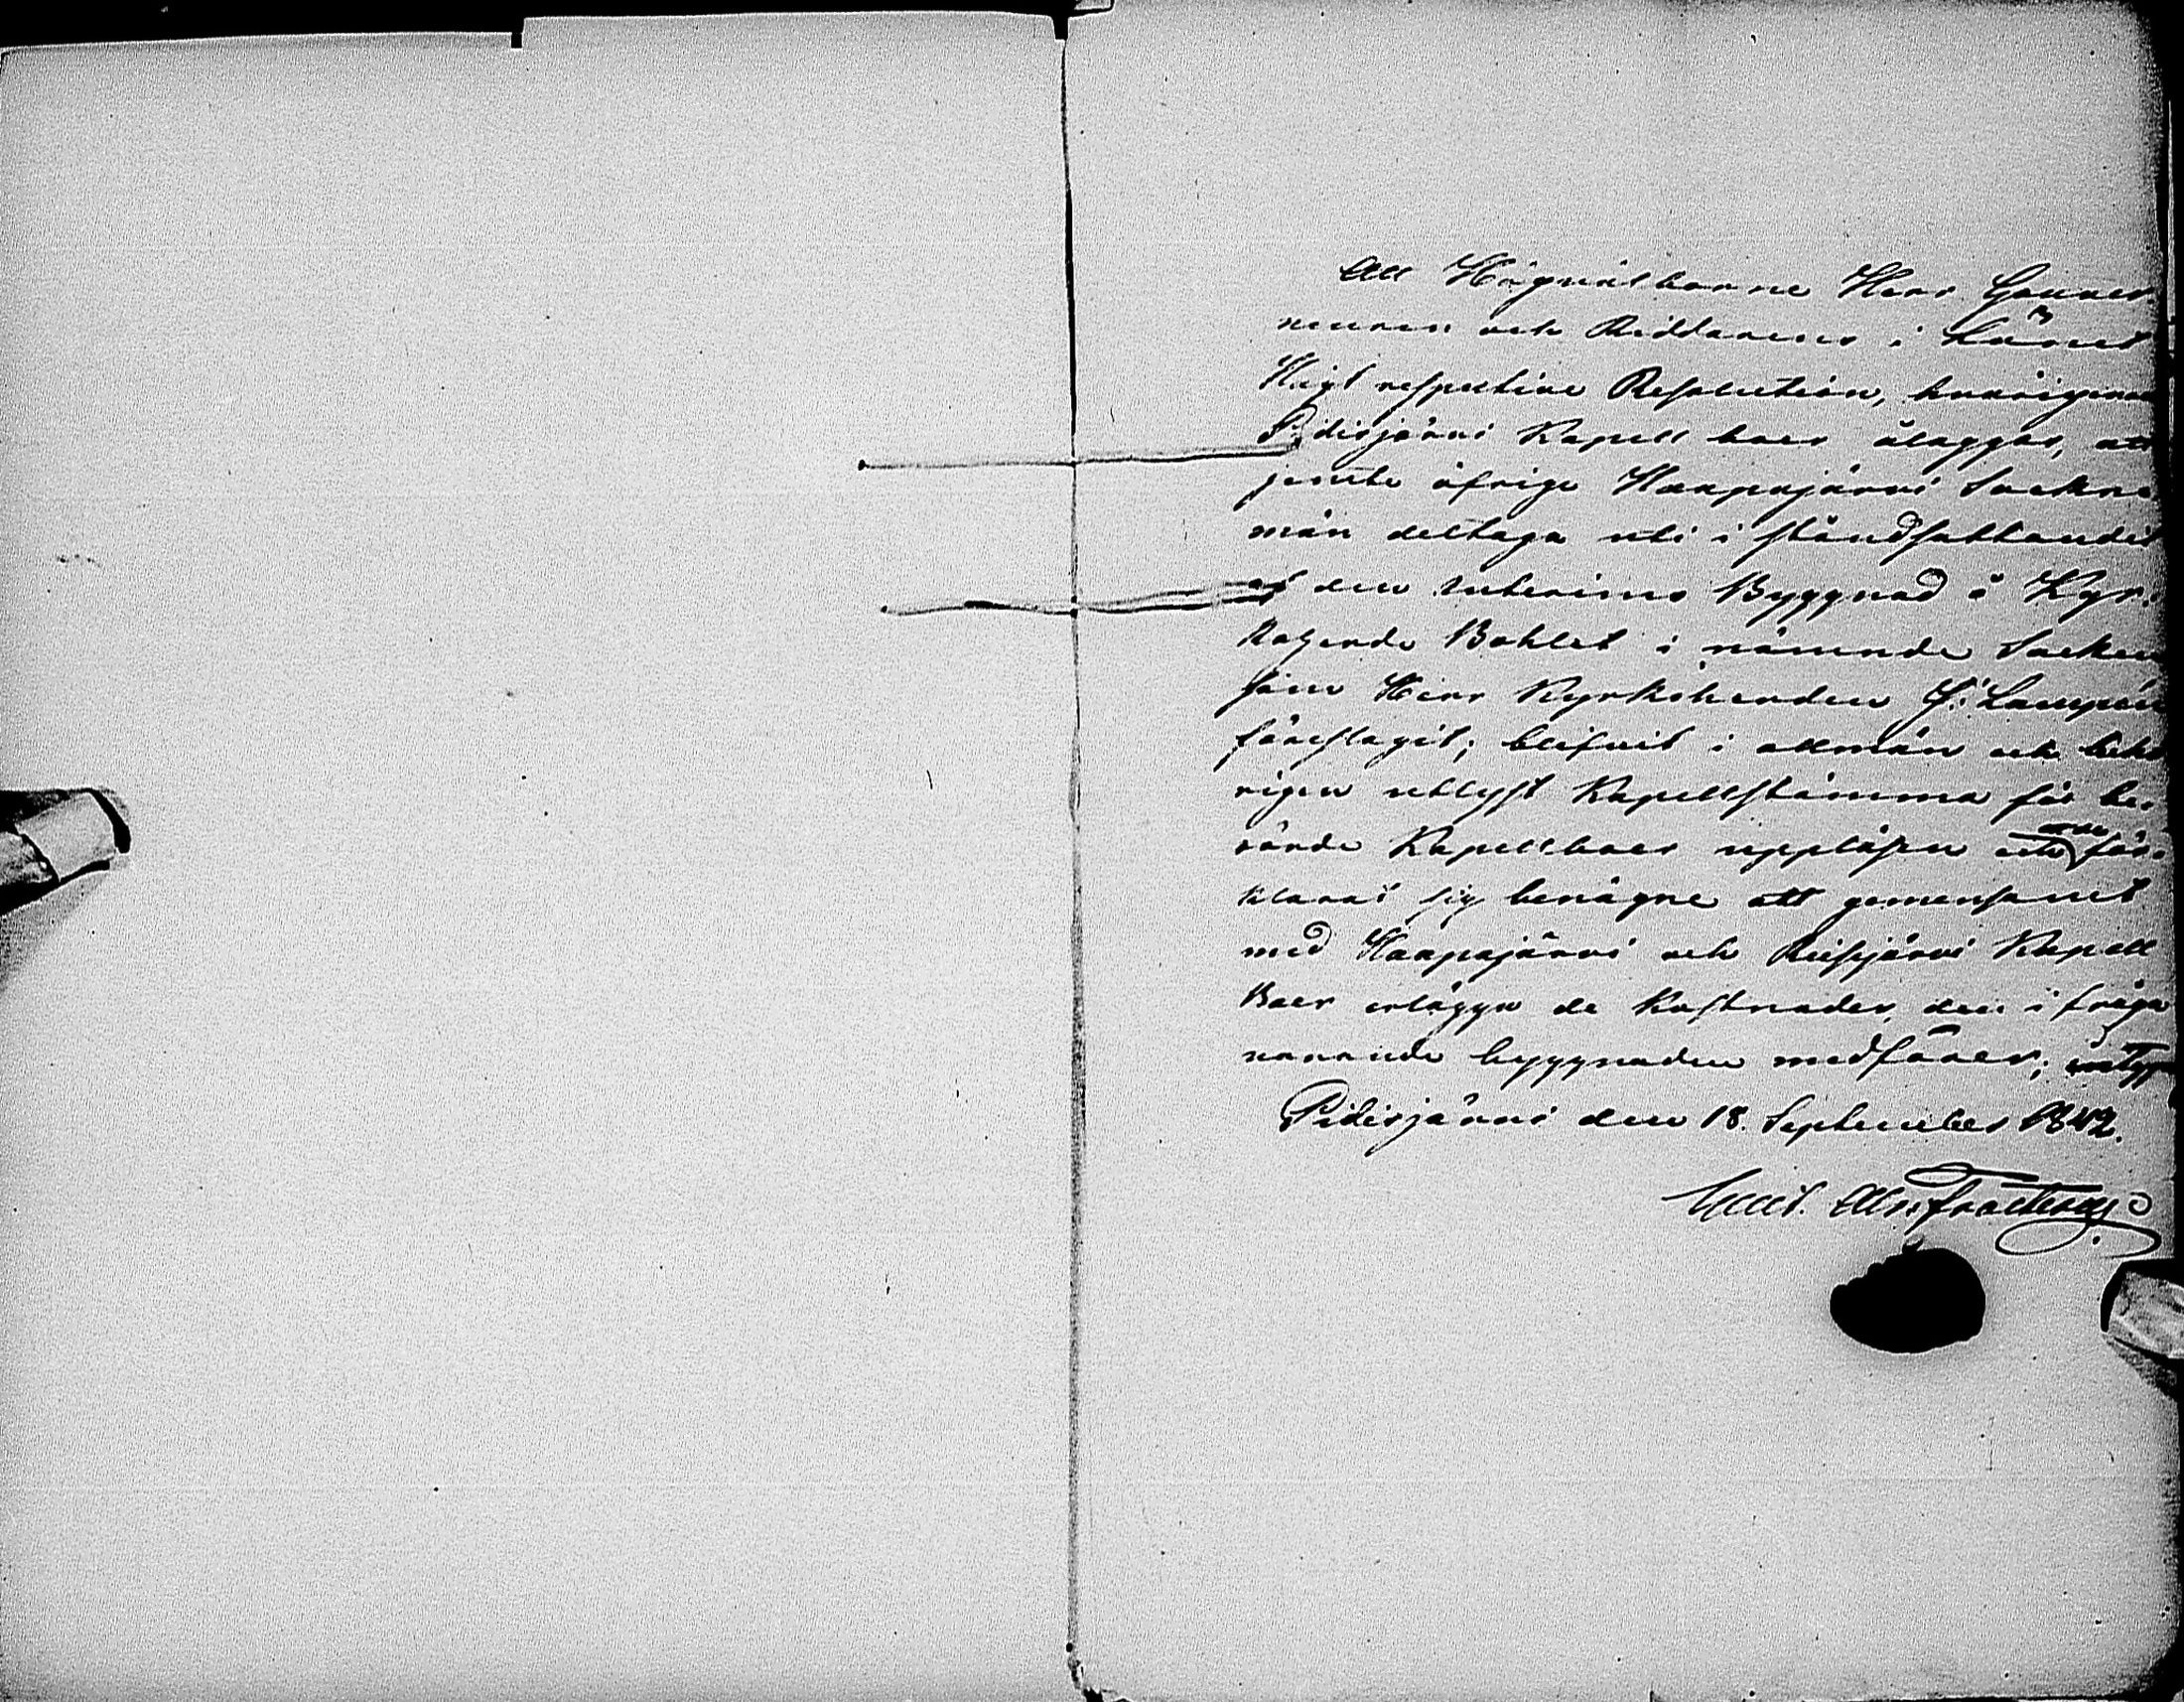 Att Högvälborne Herr Gouver-
neuren och Riddarens i Länet
Högt respective Resolution, hvarigenom
Pidisjärvi Kapell boer ålagges, att
jemte öfrige Haapajärvi Sockne
män deltaga uti i ståndsattandet
af den interims Byggnad å Kyr-
koherde Bohlet i nämnde Socken
som Herr Kyrkoherden J. Lampén
föreslagit; blifvit i allmän och behö
rigen utlyst Kapellstämma för be-
rörde Kapellboer uppläsen och för-
klarat sig benägne att gemensamt
med Haapajärvi och Reisjärvi Kapell
Boer erlägga de Kostnader, den i fråga
varande byggnaden medförer; intyga
Pidisjärvi den 18. September 1842.